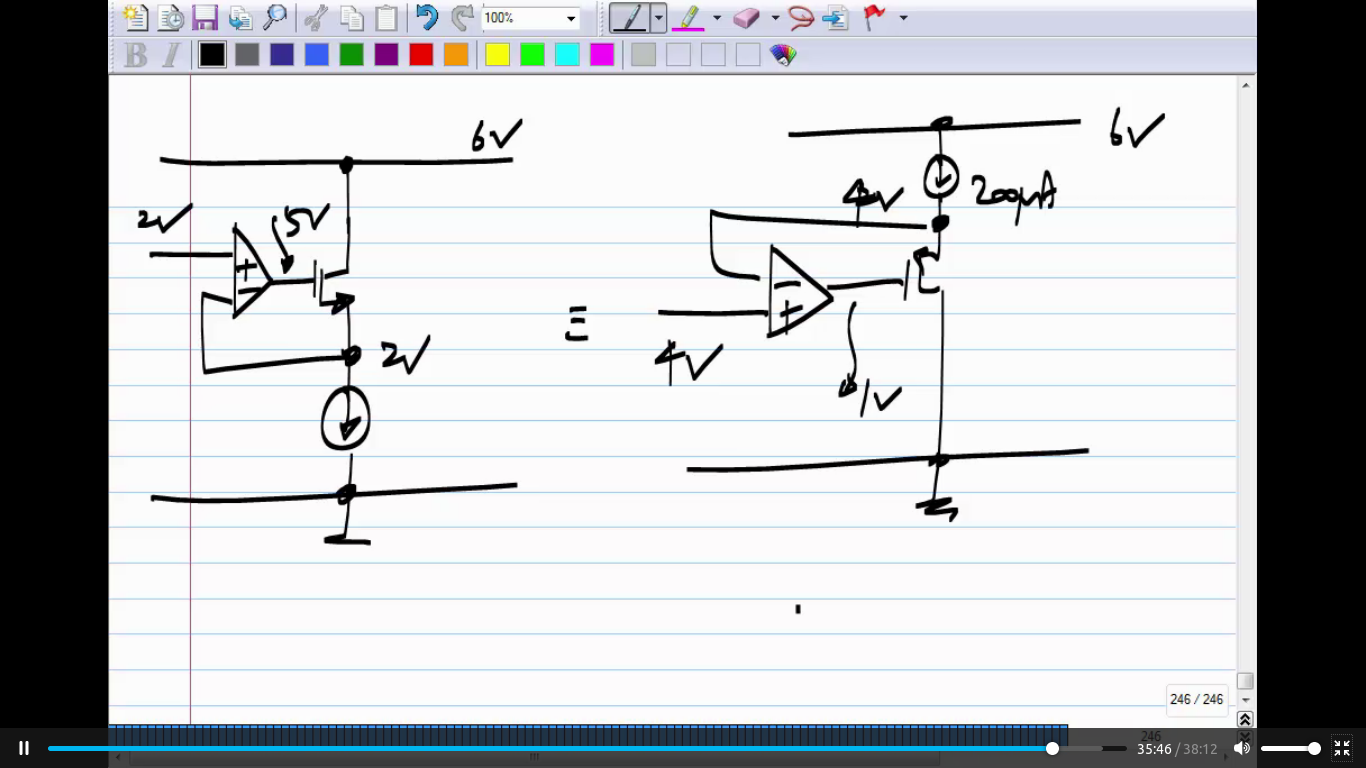 100%
B I
6V
6V
2V
5V
4V
200µA
+
−
2V
≡
−
+
4V
1V
246 / 246
246
35:46 / 38:12